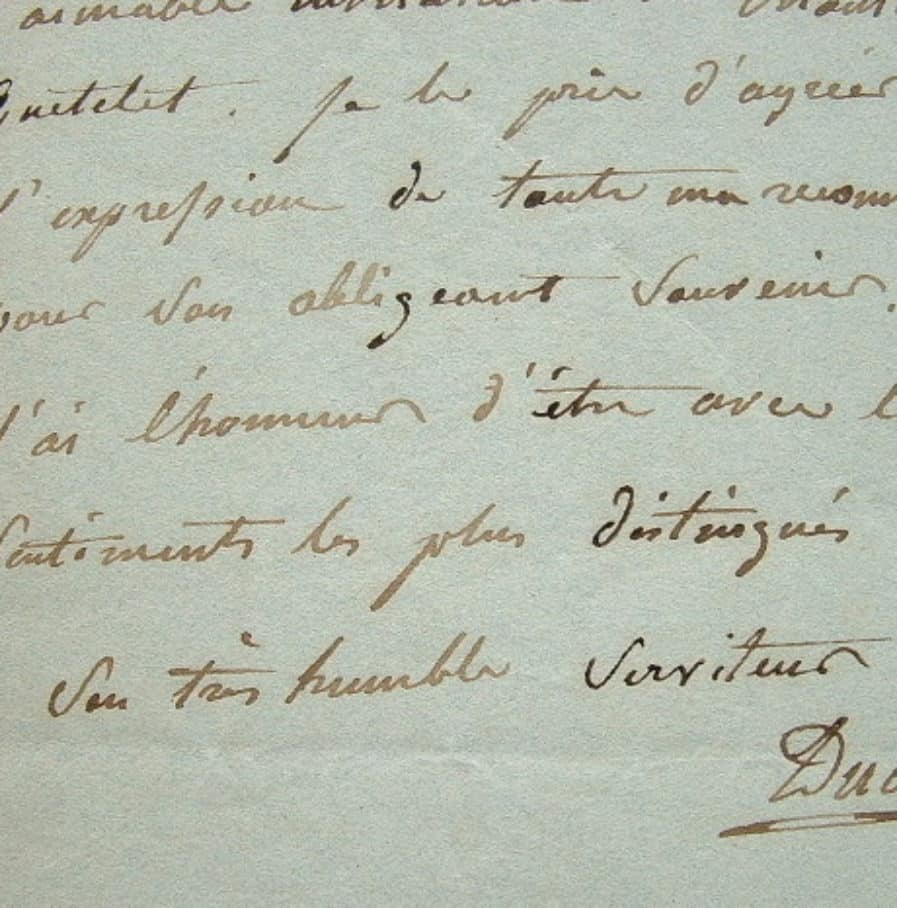 aimable invitation
Quetelet. Je le prie d'agréer
l'expression de toute ma reconn
pour son obligeant souvenir.
J'ai l'honneur d'être avec l
sentiments les plus distingués
Son très humble serviteur
Duc